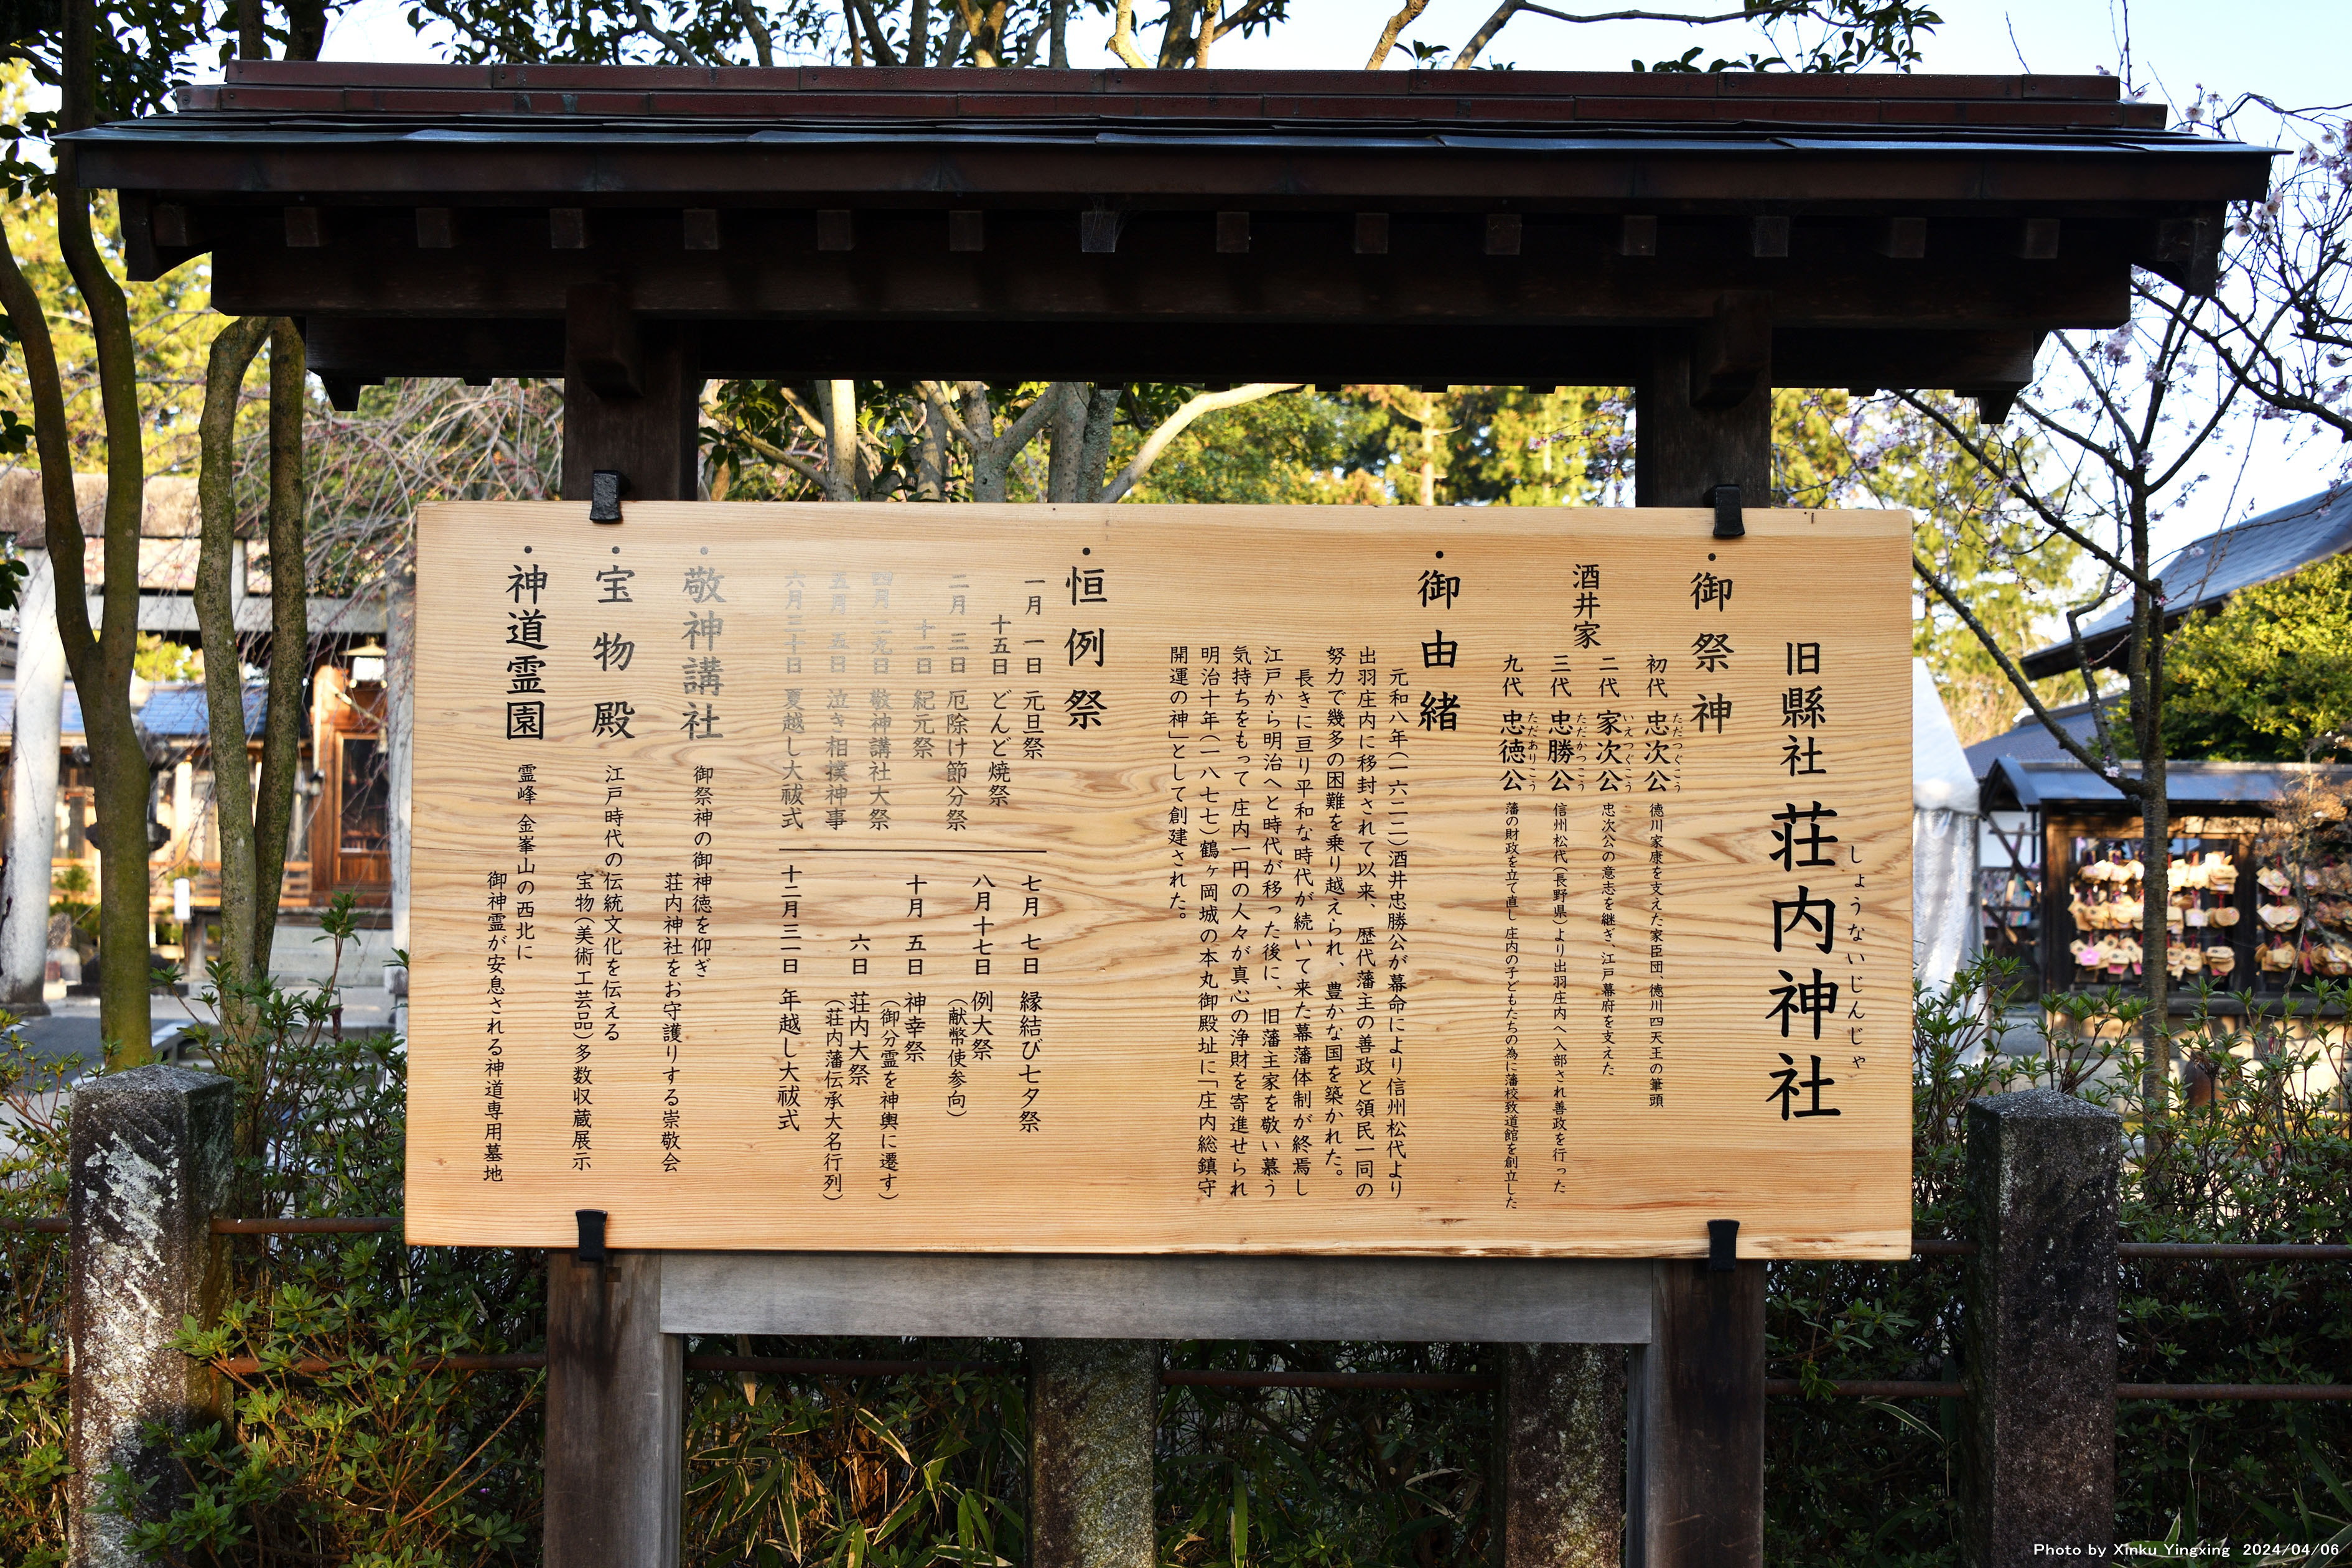 旧縣社 荘内神社
しょうないじんじゃ
・御祭神
酒井家
初代 忠次公 徳川家康を支えた家臣団、徳川四天王の筆頭
ただつぐこう
二代 家次公 忠次公の意志を継ぎ、江戸幕府を支えた
いえつぐこう
三代 忠勝公 信州松代(長野県)より出羽庄内へ入部され善政を行った
ただかつこう
九代 忠徳公 藩の財政を立て直し 庄内の子どもたちの為に藩校致道館を創立した
ただありこう
・御由緒
元和八年(一六二二)酒井忠勝公が幕命により信州松代より
出羽庄内に移封されて以来、歴代藩主の善政と領民一同の
努力で幾多の困難を乗り越えられ、豊かな国を築かれた。
長きに亘り平和な時代が続いて来た幕藩体制が終焉し
江戸から明治へと時代が移った後に、旧藩主家を敬い慕う
気持ちをもって 庄内一円の人々が真心の浄財を寄進せられ
明治十年(一八七七)鶴ヶ岡城の本丸御殿址に「庄内総鎮守
開運の神」として創建された。
・恒例祭
一月 一日 元旦祭
十五日 どんど焼祭
二月 三日 厄除け節分祭
十一日 紀元祭
四月 二九日 敬神講社大祭
五月 五日 泣き相撲神事
六月三十日 夏越し大祓式
七月 七日 縁結び七夕祭
八月十七日 例大祭
(献幣使参向)
十月 五日 神幸祭
(御分霊を神輿に遷す)
六日 荘内大祭
(荘内藩伝承大名行列)
十二月三一日 年越し大祓式
・敬神講社 御祭神の御神徳を仰ぎ
荘内神社をお守護りする崇敬会
・宝物殿 江戸時代の伝統文化を伝える
宝物(美術工芸品)多数収蔵展示
・神道霊園 霊峰 金峯山の西北に
御神霊が安息される神道専用墓地
Photo by Xinku Yingxing 2024/04/06